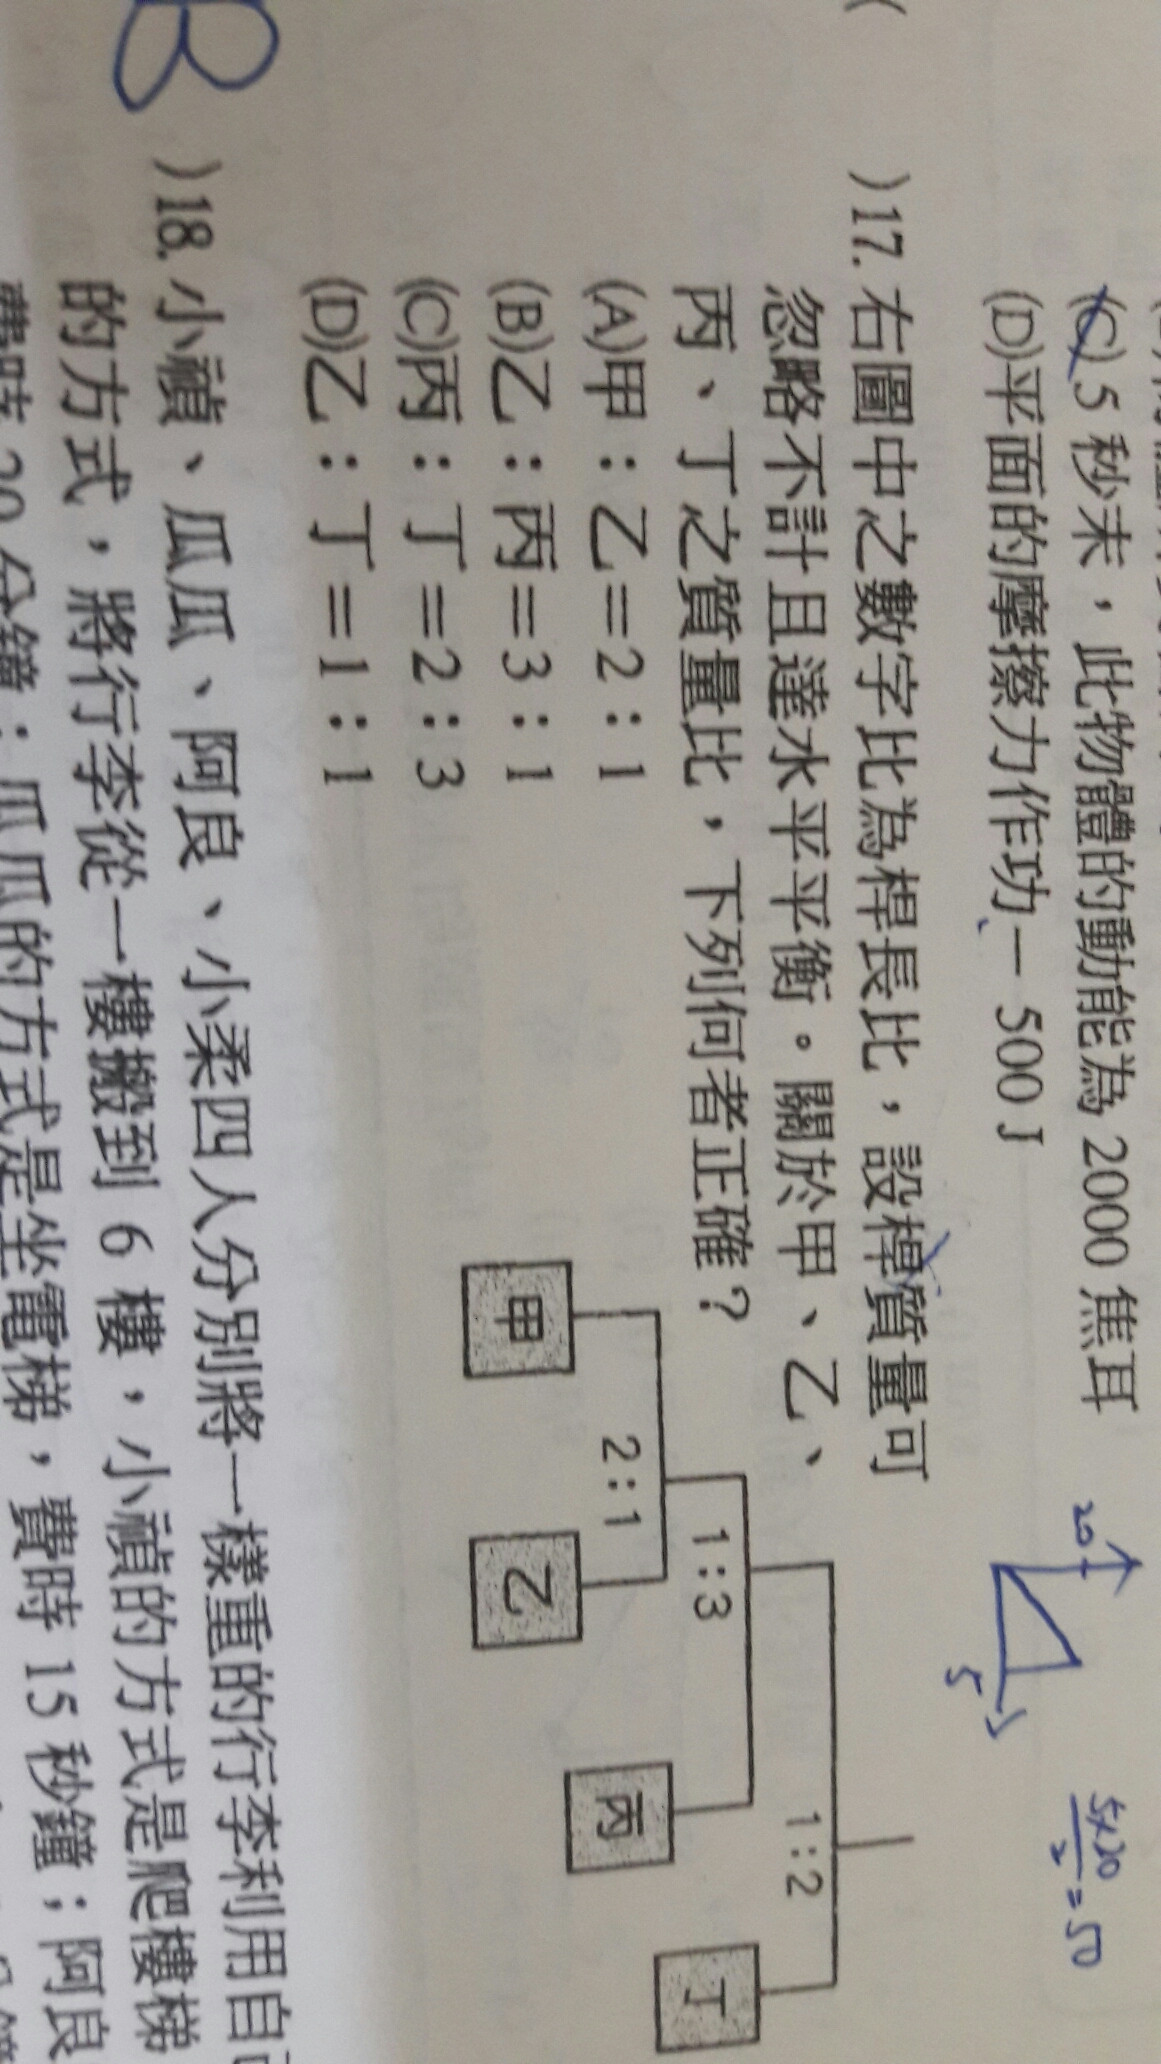 (C) 5 秒末，此物體的動能為 2000 焦耳
(D)平面的摩擦力作功－500 J
20
5
5×20
2
=50
)17. 右圖中之數字比為桿長比，設桿質量可
忽略不計且達水平平衡。關於甲、乙、
丙、丁之質量比，下列何者正確？
(A)甲：乙＝2：1
(B)乙：丙＝3：1
(C)丙：丁＝2：3
(D)乙：丁＝1：1
1：2
1：3
2：1
甲
乙
丙
丁
B
)18. 小禎、瓜瓜、阿良、小柔四人分別將一樣重的行李利用自
的方式，將行李從一樓搬到 6 樓，小禎的方式是爬樓梯
費時 20 分鐘；瓜瓜的方式是坐電梯，費時 15 秒鐘；阿良